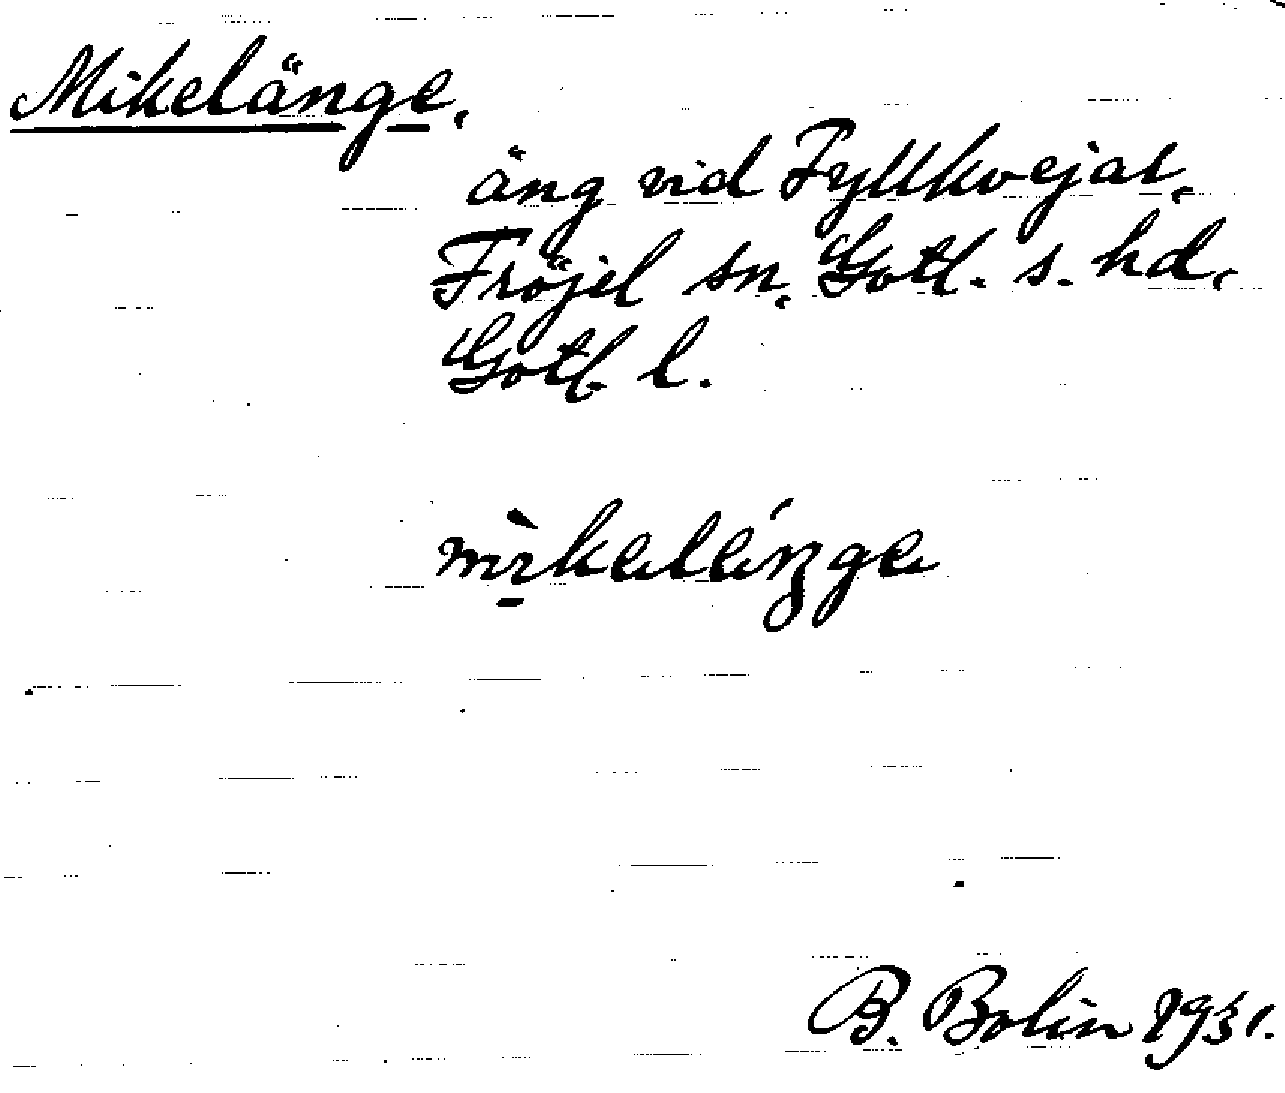 Mikelänge,
äng vid Fyllkvejar,
Fröjel sn, Gotl. s. hd,
Gotl. l.
B. Bolin 1931.